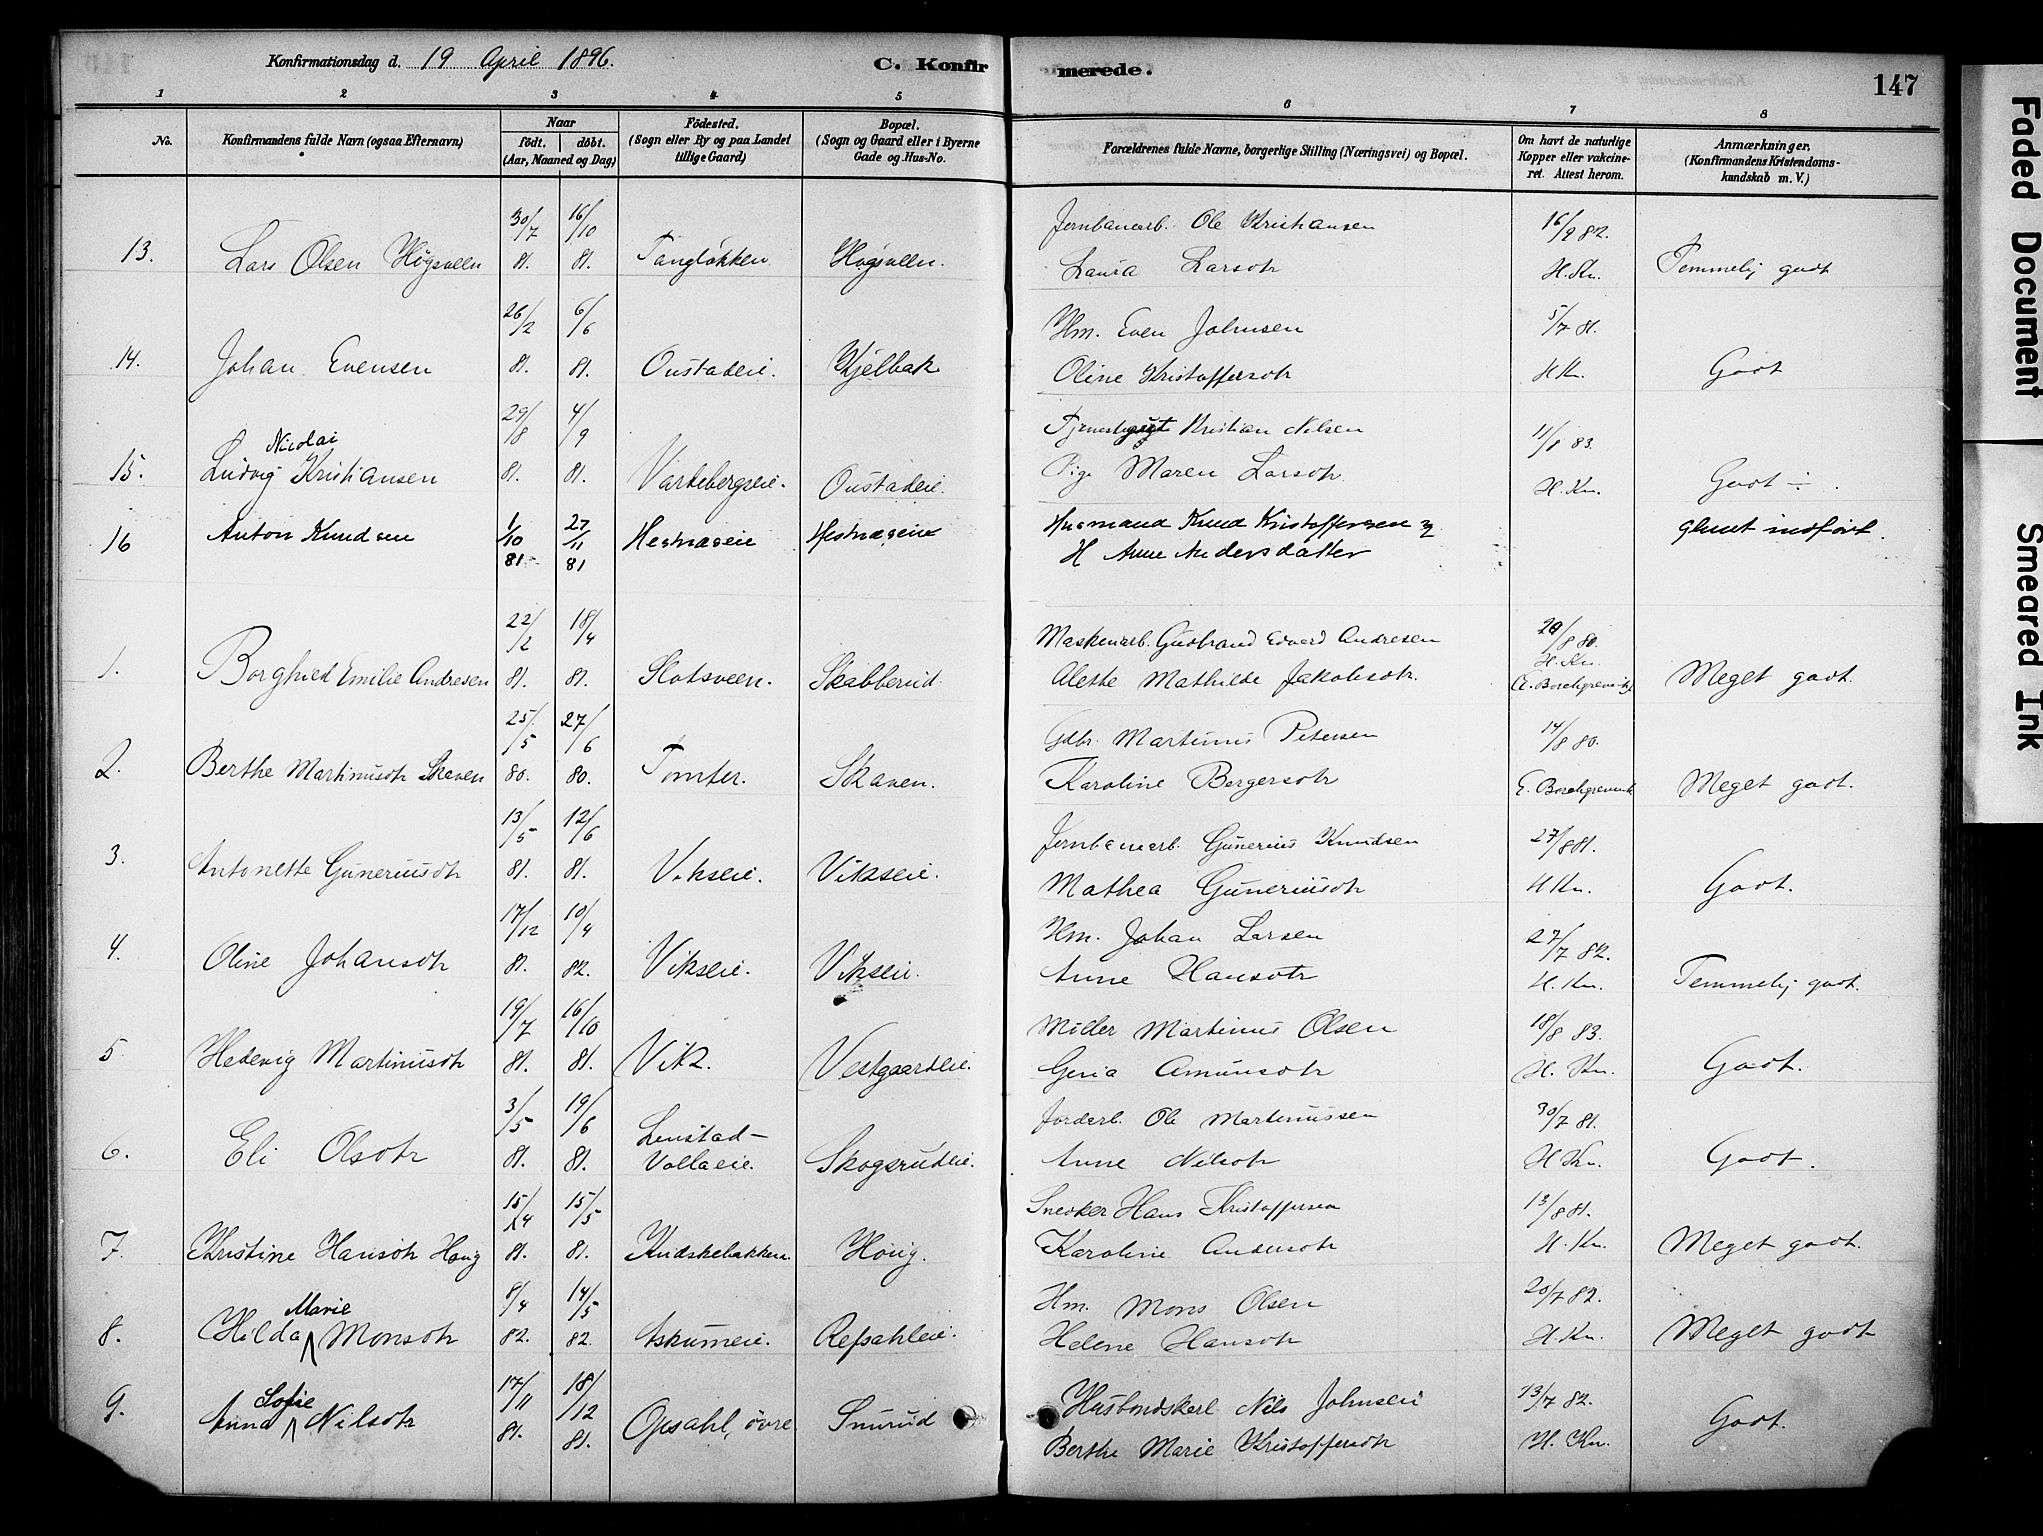 Konfirmationsdag d. 19 April 1896.
C. Konfirmerede.
147
1 2 3 4 5 6 7 8
No.
Konfirmandens fulde Navn (ogsaa Efternavn)
Naar
födt. döbt.
(Aar, Maaned og Dag)
Födested.
(Sogn eller By og paa Landet
tillige Gaard)
Bopæl.
(Sogn og Gaard eller i Byerne
Gade og Hus-No.
Forældrenes fulde Navne, borgerlige Stilling (Næringsvei) og Bopæl.
Om havt de naturlige
Kopper eller vakcine-
ret. Attest herom.
Anmærkninger.
(Konfirmandens Kristendoms-
kundskab m. V.)
30/7 16/10 Jernbanearb. Ole Kristiansen 16/9 82.
13. Lars Olsen Högsveen 81. 81. Tangløkken Høgsveen. Laura Larsdtr H. Kn. Temmelig godt
26/2 6/6 Hm. Even Johnsen 5/7 81.
14. Johan Evensen 81. 81. Oustadeie. Kjelbak Oline Kristoffersdtr H Kn. Godt
29/8 4/9 Tjenestegut Kristian Nilsen 11/8 83.
Nicolai
15. Ludvig Kristiansen 81. 81. Vardebergseie. Oustadeie. Pige Maren Larsdtr H. Kn. Godt ÷.
16 Anton Knudsen 1/10 27/11 Hestnæseie Hestnæseie Husmand Knud Kristoffersen og glemt indført.
81 81 H Anne Andersdatter
22/2 18/4 Maskenarb. Gudbrand Edvard Andresen 28/8 80.
H. Kn.
1. Borghild Emilie Andresen 81. 81. Slotsveen. Skabberud. Alette Mathilde Jakobsdtr. Meget godt.
25/5 27/6 Gdbr. Martinus Petersen 14/8 80.
2. Berthe Martinusdtr Skaven 80. 80. Tomter. Skaven. Karoline Bergersdtr E. Borchgrevink Meget godt.
13/5 12/6 Jernbanearb. Gunerius Knudsen 27/8 81.
3. Antonette Guneriusdtr 81. 81. Vikseie. Vikseie. Mathea Guneriusdtr H Kn. Godt.
17/12 10/4 Hm. Johan Larsen 27/7 82.
4. Oline Johansdtr 81. 82. Vikseie. Vikseie. Anne Hansdtr H. Kn. Temmelig godt.
19/7 16/10 Møller Martinus Olsen 18/8 83.
5 Hedevig Martinusdtr 81. 81. Vik. Vestgaardeie. Amunsdtr H. Kn. Godt.
3/5 19/6 Jorderb. Ole Martinussen 30/7 81.
6. Eli Olsdtr 81. 81. Lenstad-
Vollaeie. Skogsrudeie. Anne Nilsdtr H Kn. Godt.
15/4 15/5 Snedker Hans Kristoffersen 13/8 81.
7. Kristine Hansdtr Houg 81. 81. Kudskebakken. Houg. Karoline Andersdtr H. Kn. Meget godt.
8/4 14/5 Hm. Mons Olsen 20/7 82.
Marie
8. Hilda Monsdtr 82. 82. Askumeie. Refsahleie. Helene Hansdtr H. Kn. Meget godt
17/11 18/12 Husbondskarl Nils Johnsen 13/7 82.
Sofie
9. Anna Nilsdtr 81. 81. Opsahl, övre Snurud Berthe Marie Kristoffersdtr H. Kn. Godt.
Faded Document
Smeared Ink